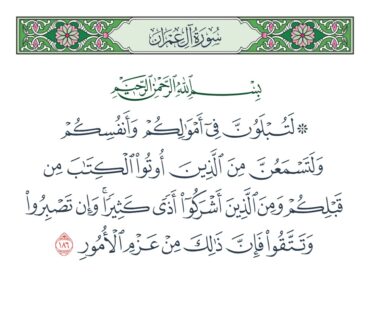 سُورَةُ آلِ عِمْرَانَ
بِسْمِ ٱللَّهِ ٱلرَّحْمَٰنِ ٱلرَّحِيمِ
۞ لَتُبْلَوُنَّ فِىٓ أَمْوَٰلِكُمْ وَأَنفُسِكُمْ
وَلَتَسْمَعُنَّ مِنَ ٱلَّذِينَ أُوتُوا۟ ٱلْكِتَٰبَ مِن
قَبْلِكُمْ وَمِنَ ٱلَّذِينَ أَشْرَكُوٓا۟ أَذًى كَثِيرًا ۚ وَإِن تَصْبِرُوا۟
وَتَتَّقُوا۟ فَإِنَّ ذَٰلِكَ مِنْ عَزْمِ ٱلْأُمُورِ ١٨٦